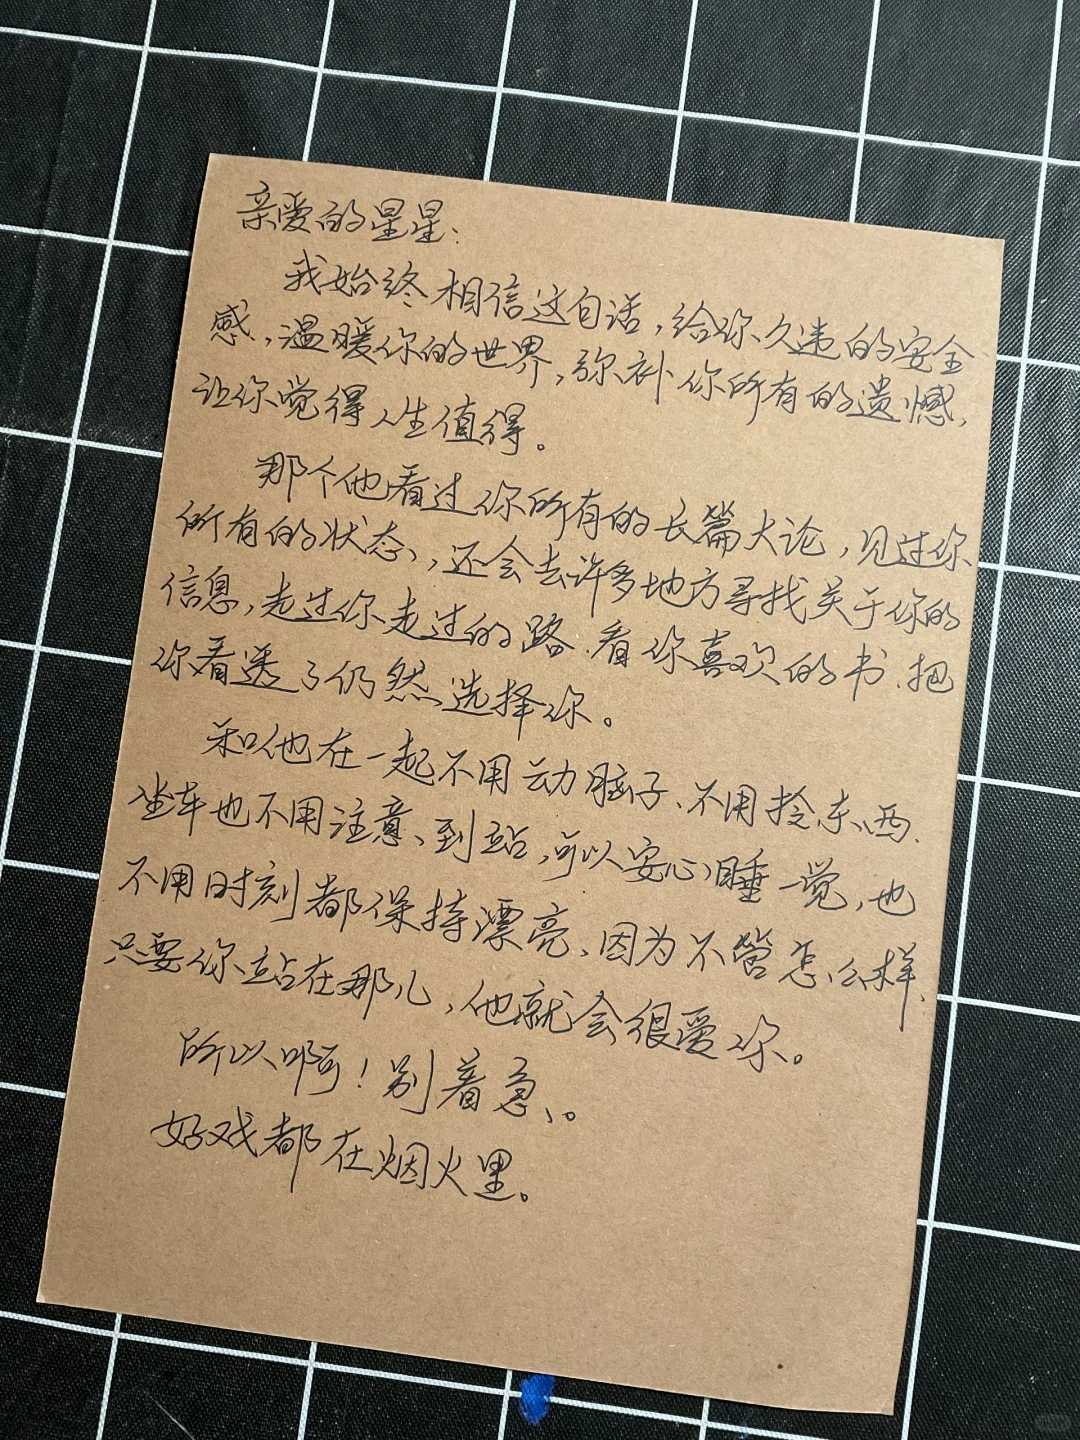 亲爱的星星:
我始终相信这句话,给你久违的安全
感,温暖你的世界,弥补你所有的遗憾,
让你觉得人生值得。
那个他看过你所有的长篇大论,见过你
所有的状态,还会去许多地方寻找关于你的
信息,走过你走过的路、看你喜欢的书、把
你看透了仍然选择你。
和他在一起不用动脑子、不用捡东西、
坐车也不用注意、到站,可以安心睡一觉,也
不用时刻都保持漂亮、因为不管怎么样、
只要你站在那儿,他就会很爱你。
所以啊!别着急、。
好戏都在烟火里。